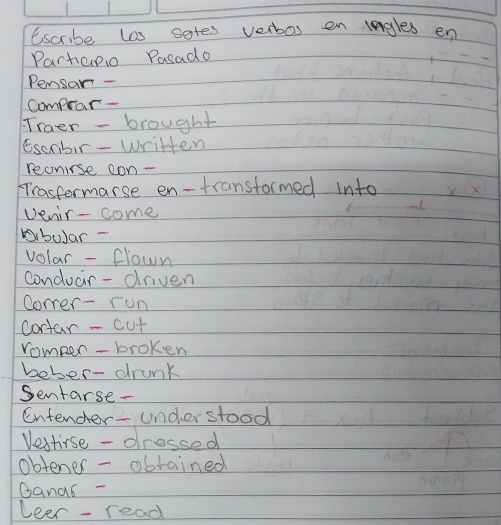 Escribe los sgtes verbos en ingles en
Participio Pasado
Pensar -
Comprar -
Traer - brought
Escribir - written
reunirse con -
Trasformarse en - transformed into
Venir - come
Dibujar -
Volar - flown
Conducir - driven
Correr - run
Cortar - cut
romper - broken
beber - drunk
Sentarse -
Entender - understood
Vestirse - dressed
Obtener - obtained
Ganar -
Leer - read